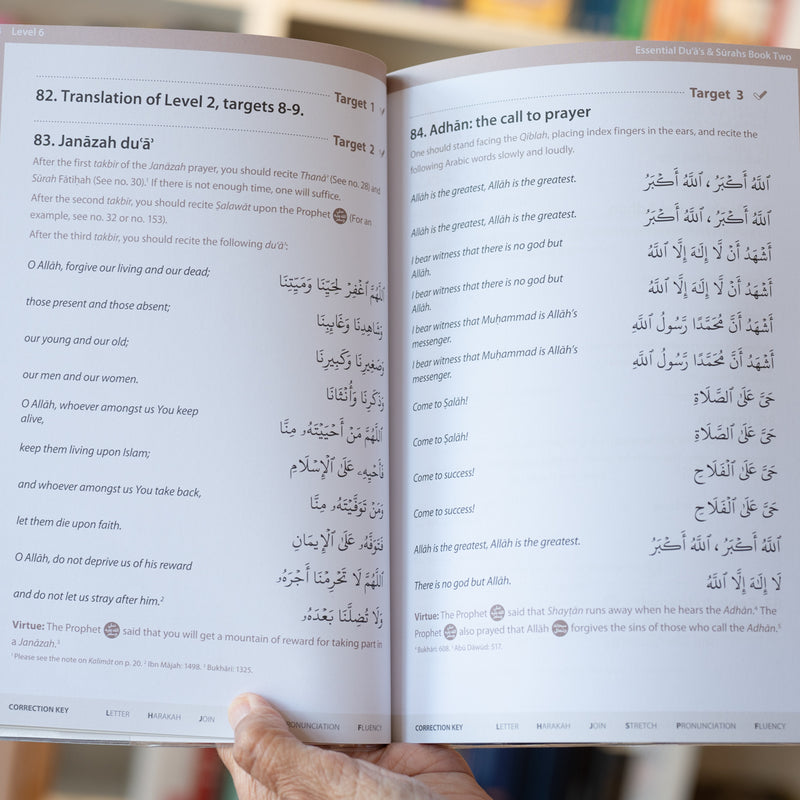 Level 6
82. Translation of Level 2, targets 8-9.
Target 1
Target 2
83. Janāzah du‘ā’
After the first takbir of the Janāzah prayer, you should recite Thanā’ (See no. 28) and
Sūrah Fātiḥah (See no. 30).¹ If there is not enough time, one will suffice.
After the second takbir, you should recite Ṣalawāt upon the Prophet (For an
example, see no. 32 or no. 153).
After the third takbir, you should recite the following du‘ā’:
O Allāh, forgive our living and our dead;
اَللّٰهُمَّ اغْفِرْ لِحَيِّنَا وَمَيِّتِنَا
those present and those absent;
وَشَاهِدِنَا وَغَائِبِنَا
our young and our old;
وَصَغِيرِنَا وَكَبِيرِنَا
our men and our women.
وَذَكَرِنَا وَأُنْثَانَا
O Allāh, whoever amongst us You keep
alive,
اَللّٰهُمَّ مَنْ أَحْيَيْتَهُۥ مِنَّا
keep them living upon Islam;
فَأَحْيِهِۦ عَلَى الْإِسْلَامِ
and whoever amongst us You take back,
وَمَنْ تَوَفَّيْتَهُۥ مِنَّا
let them die upon faith.
فَتَوَفَّهُۥ عَلَى الْإِيمَانِ
O Allāh, do not deprive us of his reward
اَللّٰهُمَّ لَا تَحْرِمْنَا أَجْرَهُۥ
and do not let us stray after him.²
وَلَا تُضِلَّنَا بَعْدَهُۥ
Virtue: The Prophet said that you will get a mountain of reward for taking part in
a Janāzah.³
¹ Please see the note on Kalimāt on p. 20. ² Ibn Mājah: 1498. ³ Bukhārī: 1325.
CORRECTION KEY LETTER HARAKAH JOIN PRONUNCIATION FLUENCY
Essential Du‘ā’s & Sūrahs Book Two
Target 3
84. Adhān: the call to prayer
One should stand facing the Qiblah, placing index fingers in the ears, and recite the
following Arabic words slowly and loudly.
Allāh is the greatest, Allāh is the greatest.
اَللّٰهُ أَكْبَرُ ، اَللّٰهُ أَكْبَرُ
Allāh is the greatest, Allāh is the greatest.
اَللّٰهُ أَكْبَرُ ، اَللّٰهُ أَكْبَرُ
I bear witness that there is no god but
Allāh.
أَشْهَدُ أَنْ لَّا إِلٰهَ إِلَّا اللّٰهُ
I bear witness that there is no god but
Allāh.
أَشْهَدُ أَنْ لَّا إِلٰهَ إِلَّا اللّٰهُ
I bear witness that Muḥammad is Allāh’s
messenger.
أَشْهَدُ أَنَّ مُحَمَّدًا رَّسُولُ اللّٰهِ
I bear witness that Muḥammad is Allāh’s
messenger.
أَشْهَدُ أَنَّ مُحَمَّدًا رَّسُولُ اللّٰهِ
Come to Ṣalāh!
حَيَّ عَلَى الصَّلَاةِ
Come to Ṣalāh!
حَيَّ عَلَى الصَّلَاةِ
Come to success!
حَيَّ عَلَى الْفَلَاحِ
Come to success!
حَيَّ عَلَى الْفَلَاحِ
Allāh is the greatest, Allāh is the greatest.
اَللّٰهُ أَكْبَرُ ، اَللّٰهُ أَكْبَرُ
There is no god but Allāh.
لَا إِلٰهَ إِلَّا اللّٰهُ
Virtue: The Prophet said that Shayṭān runs away when he hears the Adhān.⁴ The
Prophet also prayed that Allāh forgives the sins of those who call the Adhān.⁵
⁴ Bukhārī: 608. ⁵ Abū Dāwūd: 517.
CORRECTION KEY LETTER HARAKAH JOIN STRETCH PRONUNCIATION FLUENCY